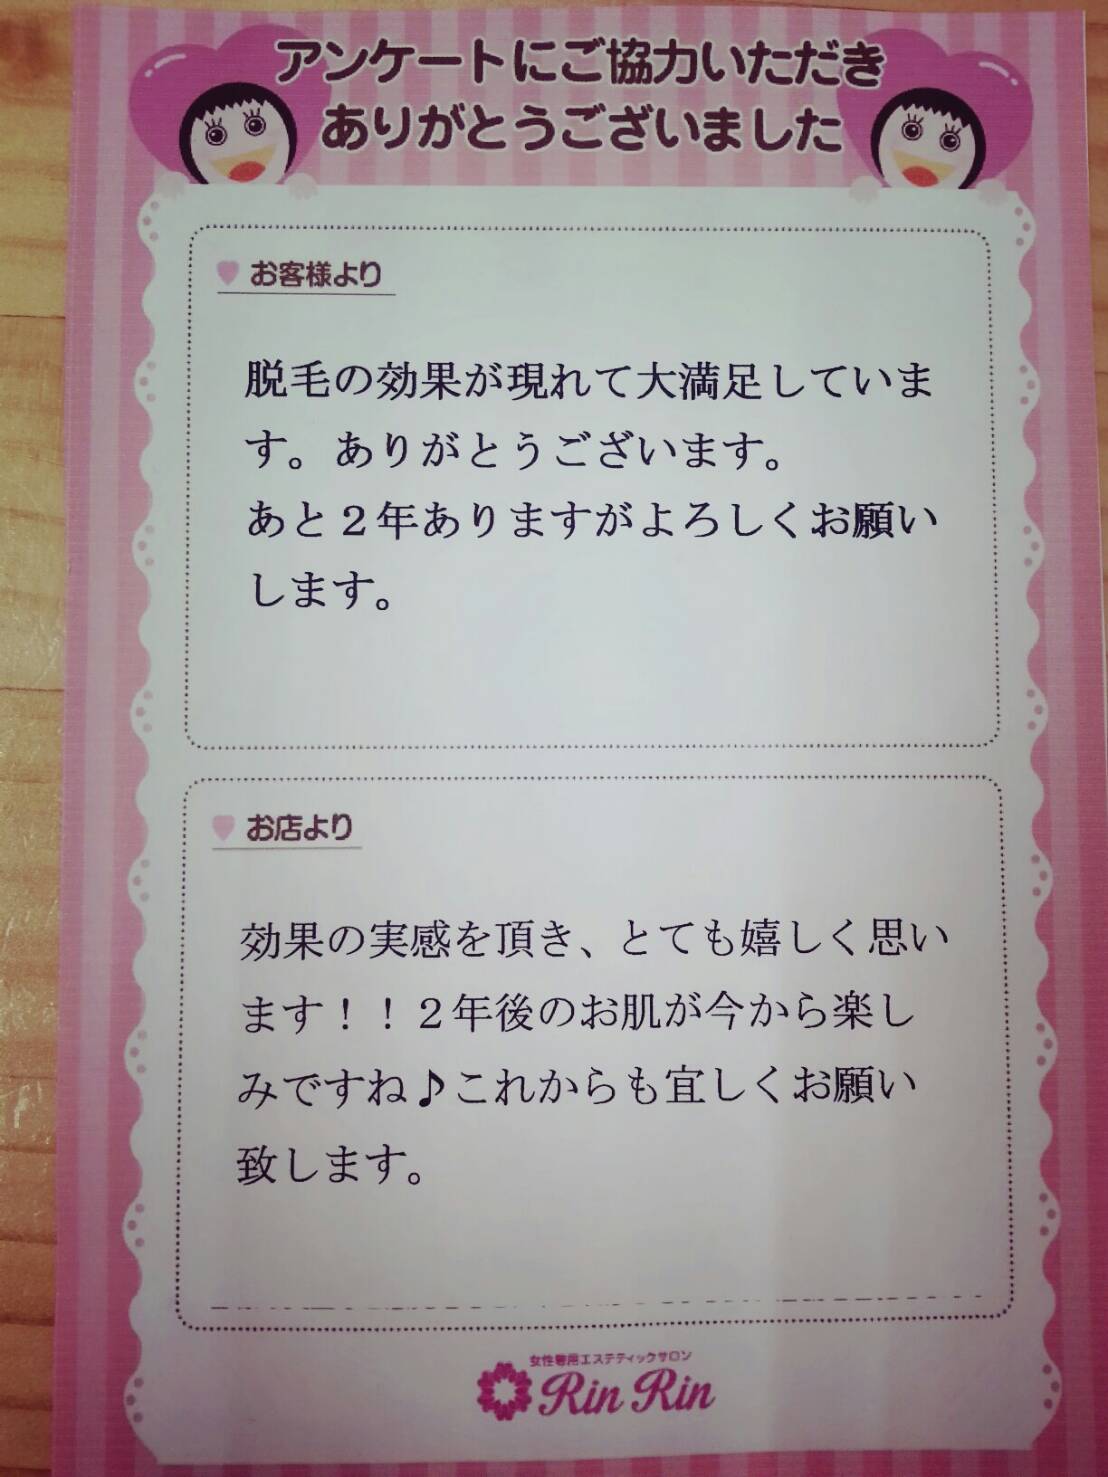 アンケートにご協力いただき
ありがとうございました
お客様より
脱毛の効果が現れて大満足していま
す。ありがとうございます。
あと２年ありますがよろしくお願い
します。
お店より
効果の実感を頂き、とても嬉しく思い
ます！！２年後のお肌が今から楽し
みですね♪これからも宜しくお願い
致します。
女性専用エステティックサロン
Rin Rin